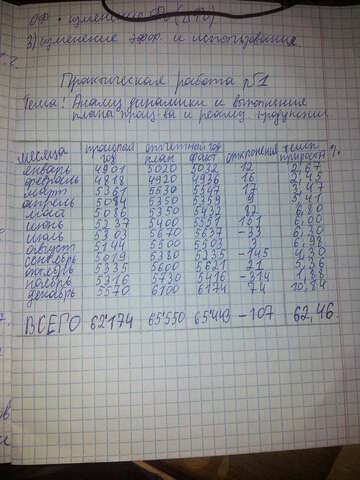 3) изменение эфф. и использования
Практическая работа №1
Тема: Анализ динамики и выполнение
плана произ-ва и реализ. продукции
месяца прошлый год отчетный год план факт отклонения темп прироста %
январь 4901 5020 5032 12
февраль 4818 4920 4936 16
март 5361 5530 5547 17
апрель 5084 5350 5359 9 5,41
май 5086 5350 5432 82 6,80
июнь 5237 5400 161 6,00
июль 5303 5670 5637 -33 6,30
август 5144 5500 5503 3 6,98
сентябрь 5019 5380 5235 -145 4,30
октябрь 5335 5600 5621 21 5,36
ноябрь 5316 5730 5416 -314 1,88
декабрь 5570 6100 6174 74 10,84
ВСЕГО 62174 65550 65443 -107 62,46